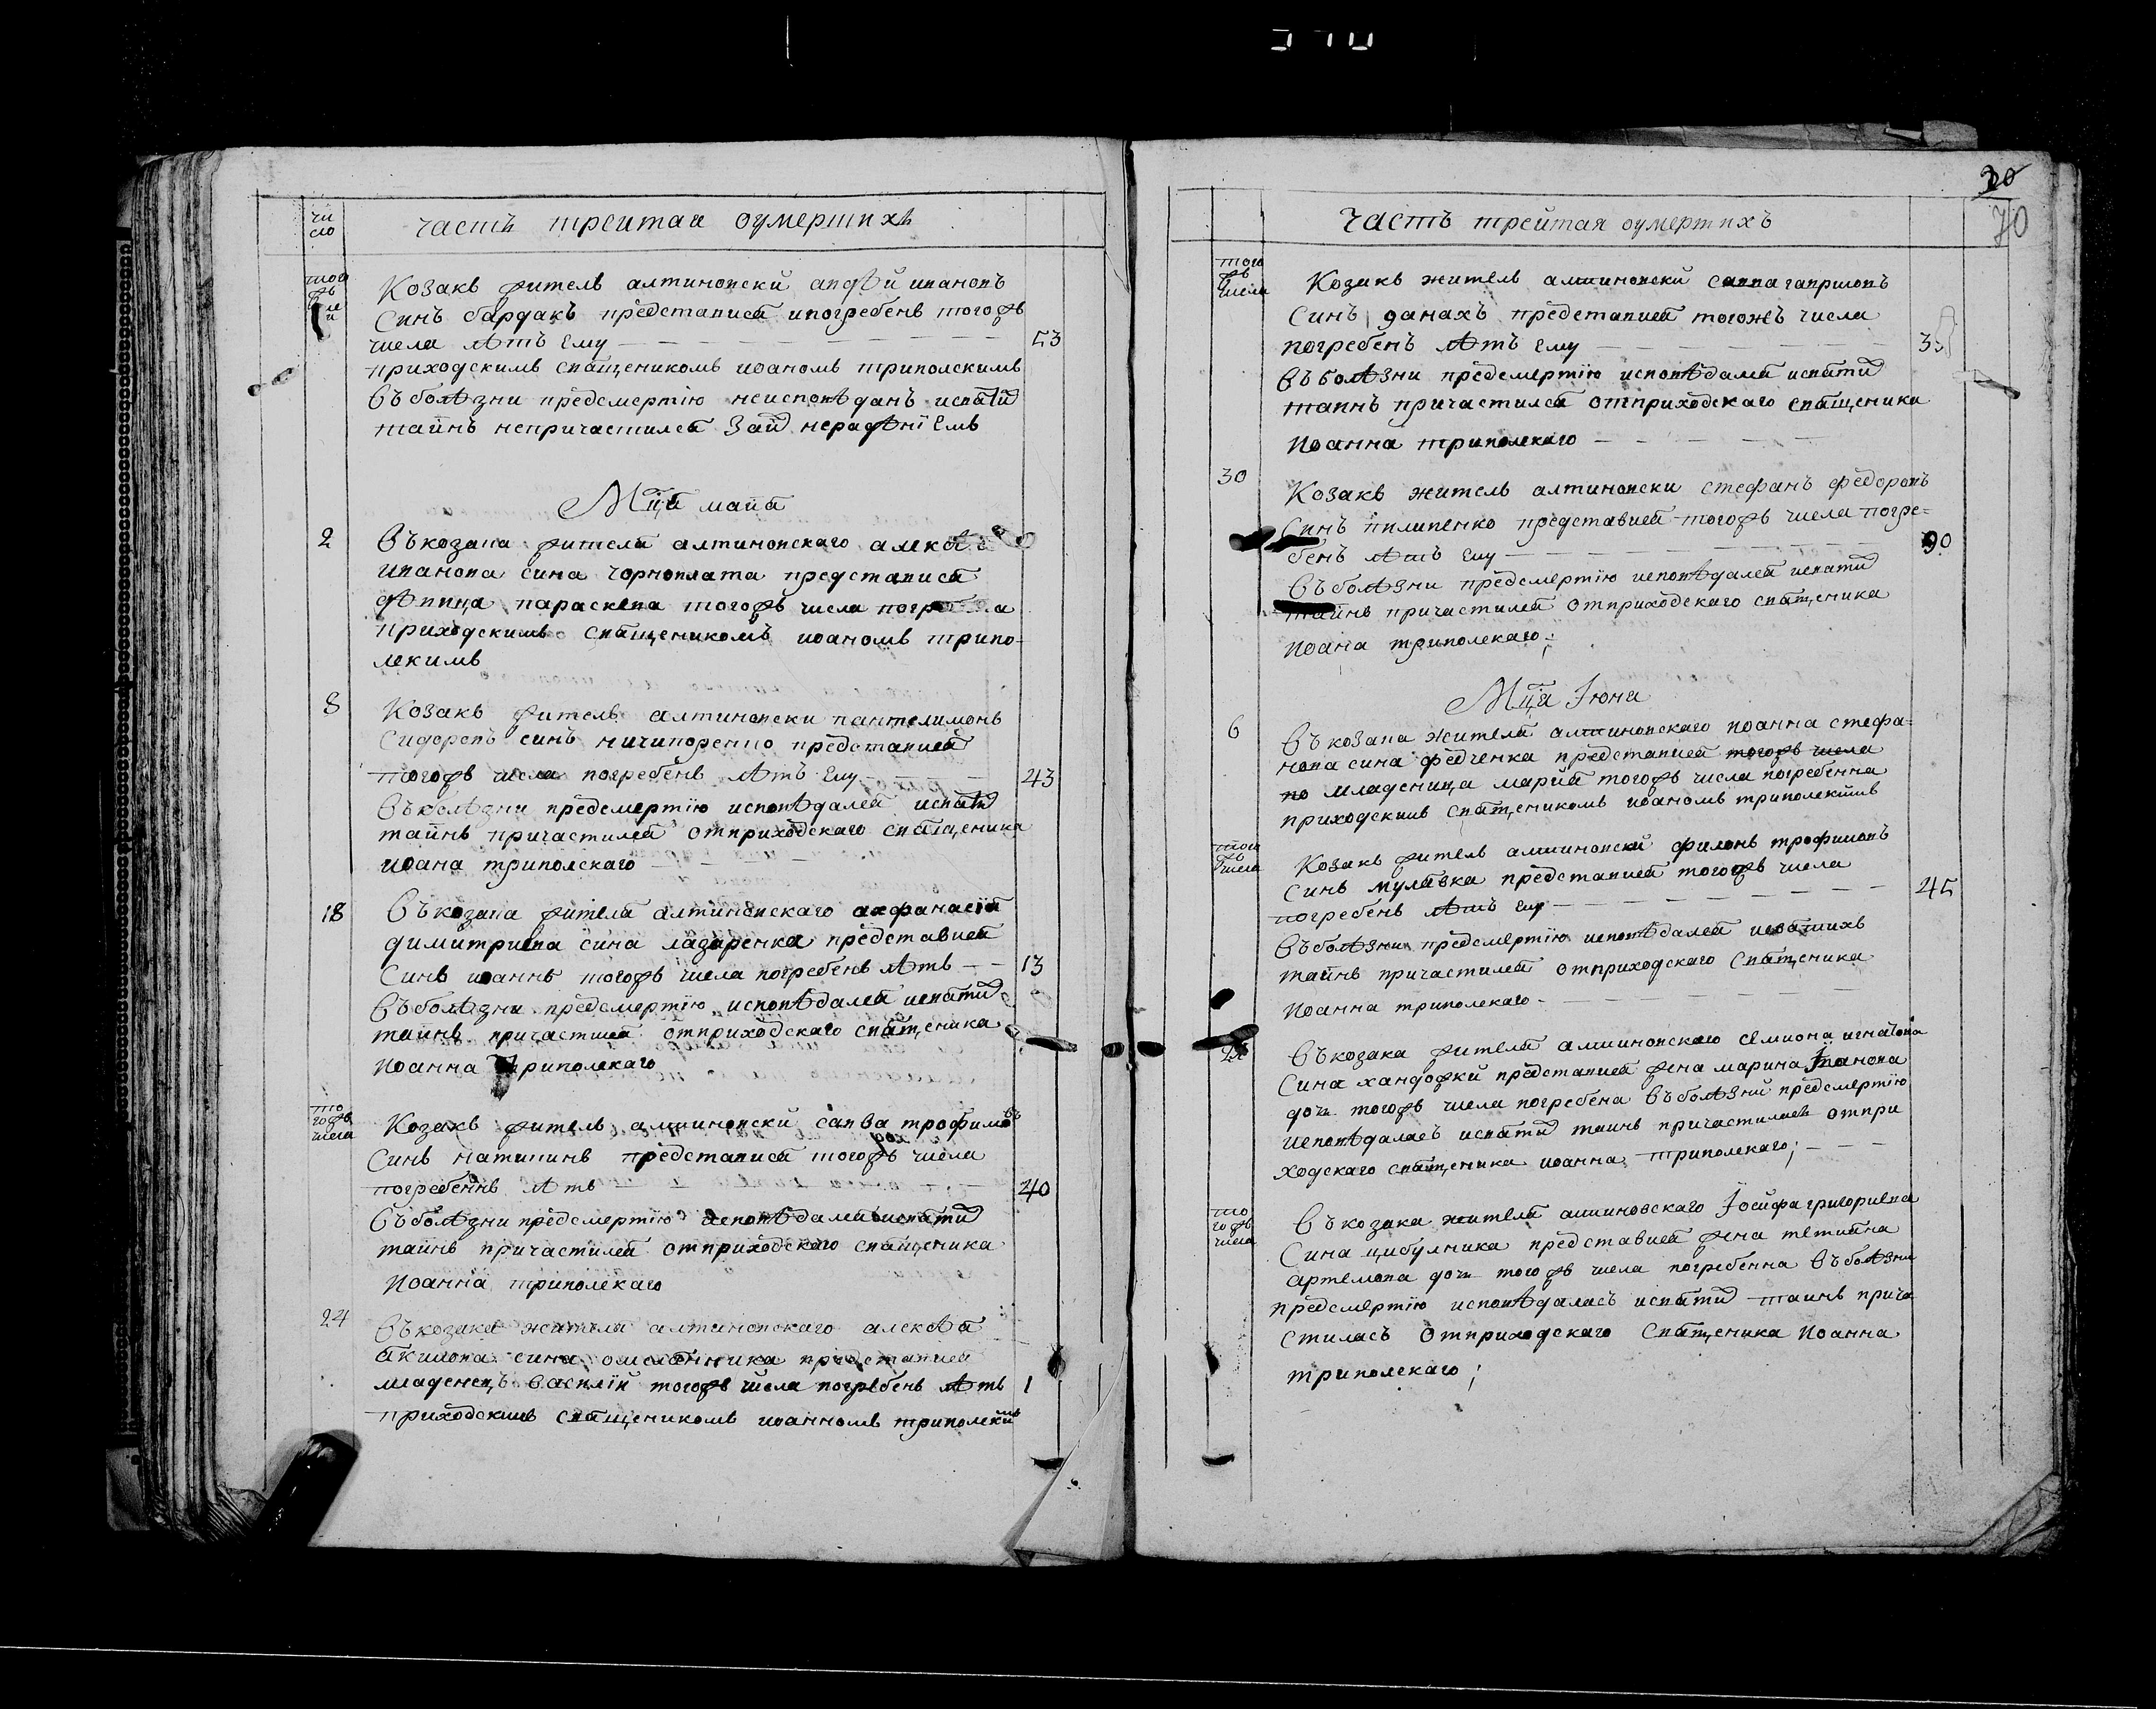 чи
сло
часть трейтая оумершихъ
того
жъ
Козакъ житель алтиновски андѣй ивановъ
Синъ бардакъ представися ипогребенъ тогожъ
числа лѣтъ Ему 53
приходскимъ свāщеникомъ иоаномъ триполскимъ
Въболѣзни предсмертїю неисповѣданъ исвāтиⷯ
тайнъ непричастился Зай нерадѣнїЕмъ
Мⷭ҇ца маия
2 Въкозака жителя алтиновского алекѣя
иванова сина чорноплата представися
дѣвица параскева тогожъ числа погребена
приходскимъ свāщеникомъ иоаномъ трипо-
лскимъ
8 Козакъ житель алтиновски пантелимонъ
Сидоревъ синъ ничипоренко представися
тогожъ числа погребенъ лѣтъ Ему 43
Въболѣзни предсмертїю исповѣдался исвāтиⷯ
тайнъ причастился отприходскаго свāщеника
иоана триполскаго
18 Въкозака жителя алтиновского акфанасїя
димитриева сина лазаренка представися
Синъ иоаннъ тогожъ числа погребенъ лѣтъ 13
Въболѣзни предсмертїю исповѣдался исвāтиⷯ
тайнъ причастися отприходскаго свāщеника
Иоанна триполскаго
то
гожъ
числа
Козакъ житель алтиновски савва трофимовъ
Синъ натининъ представися тогожъ числа
погребеннъ лѣтъ 40
Въболѣзни предсмертїю исповѣдался исвāтиⷯ
таинъ причастился отприходскаго свāщеника
Иоанна триполскаго
24 Въкозака жителя алтиновского алекѣя
акимова сина омелāнника представися
младенецъ василїй тогожъ числа погребенъ лѣтъ 1
приходскимъ свāщеникомъ иоанномъ триполскимъ
30
70
часть трейтая оумершихъ
того
жъ
числа
Козакъ житель алтиновски савва гавриловъ
Синъ данахъ представися тогожъ числа
погребенъ лѣтъ Ему
Въболѣзни предсмертїю исповѣдался исвāтиⷯ
таинъ причастился отприходскаго свāщеника
Иоанна триполскаго
30 Козакъ житель алтиновски стефанъ федоровъ
Синъ пилипенко представися тогожъ числа погре-
бенъ лѣтъ Ему 90
Въболѣзни предсмертїю исповѣдался исвāтиⷯ
тайнъ причастился отприходскаго свāщеника
Иоана триполскаго;
Мⷭ҇ца Июня
6 Въкозака жителя алтиновского иоанна стефа-
нова сина федченка представися тогожъ числа
по младеница марйя тогожъ числа погребенна
приходскимъ свāщеникомъ иоаномъ триполскимъ
того
жъ
числа
Козакъ житель алтиновски филонъ трофимовъ
Синъ мулāвка представися тогожъ числа
погребенъ лѣтъ Ему 45
Въболѣзни предсмертїю исповѣдался исвāтихъ
тайнъ причастился отприходскаго свāщеника
Иоанна триполскаго
Въкозака жителя алтиновского семиона игнатова
Сина хандожки представися жена марина Иванова
дочъ тогожъ числа погребена Въболѣзни предсмертїю
исповѣдалась исвāтиⷯ таинъ причастилась отпри
ходскаго свāщеника иоанна триполскаго;
то
гожъ
числа
Въкозака жителя алтиновского Иосифа григориева
Сина цибулника представися жена тетияна
артемова дочъ тогожъ числа погребенна Въболѣзни
предсмертїю исповѣдалась исвāтиⷯ таинъ прича
стилась отприходскаго свāщеника Иоанна
триполскаго;